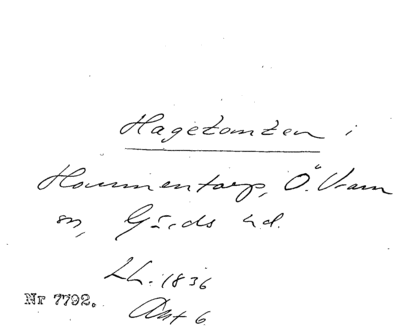 Hagetomten i
Hommentorp, Ö. Vram
sn, Gärds hd.
LL. 1836
Nr 7792.
Avt 6